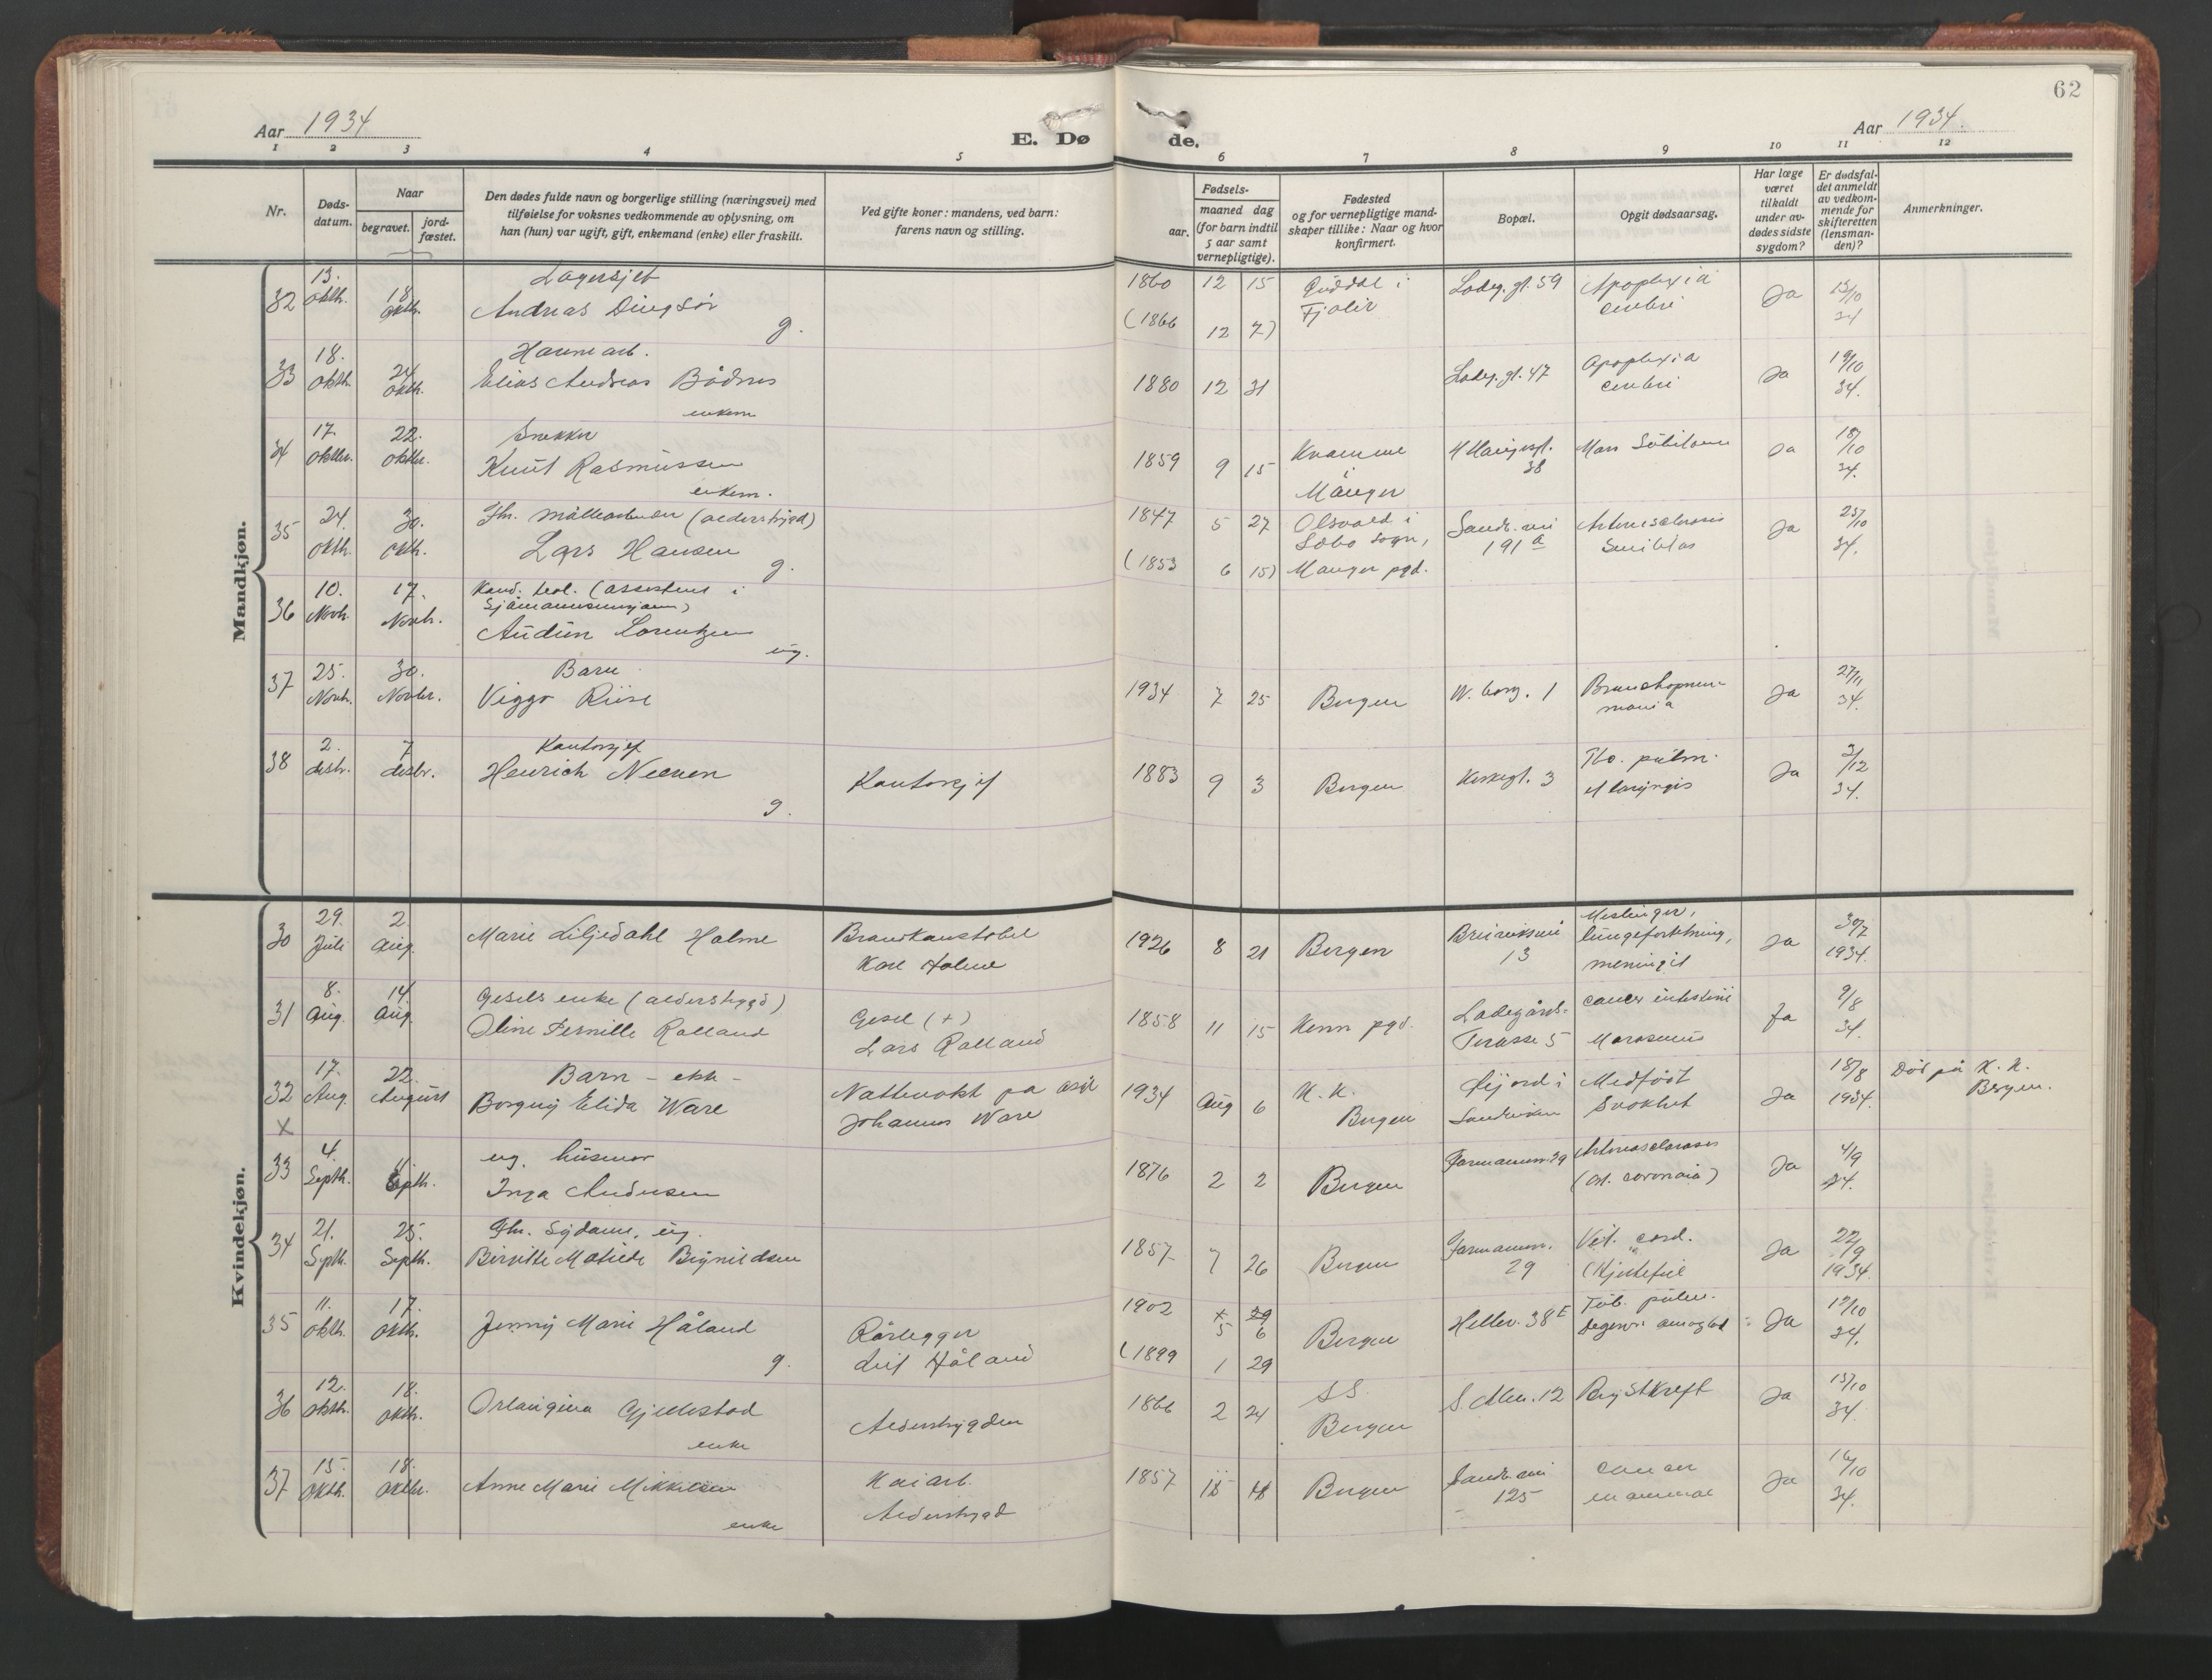 62
Aar 1934
E. Dø
de.
Aar 1934.
1 2 3 4 5 6 7 8 9 10 11 12
Nr.
Døds-
datum.
Naar
begravet.
jord-
fæstet.
Den dødes fulde navn og borgerlige stilling (næringsvei) med
tilføielse for voksnes vedkommende av oplysning, om
han (hun) var ugift, gift, enkemand (enke) eller fraskilt.
Ved gifte koner: mandens, ved barn:
farens navn og stilling.
Fødsels-
aar.
maaned dag
(for barn indtil
5 aar samt
vernepligtige).
Fødested
og for vernepligtige mand-
skaper tillike: Naar og hvor
konfirmert.
Bopæl.
Opgit dødsaarsag.
Har læge
været
tilkaldt
under av-
dødes sidste
sygdom?
Er dødsfal-
det anmeldt
av vedkom-
mende for
skifteretten
(lensman-
den)?
Anmerkninger.
Mandkjøn.
32
13.
oktb.
18
oktb.
Lagersjef
Andreas Dingsör
g.
1860 12 15
(1866 12 7)
Guddal i
Fjaler
Ladeg.gt. 59
Apoplexia
cerebri
Ja
15/10
34
33
18.
oktb.
24
oktb.
Havnearb.
Elias Andreas Bådsnes
enkem
1880 12 31
Ladeg.gt. 47
Apoplexia
cerebri
Ja
19/10
34.
34
17.
oktbr.
22.
oktbr.
Snekker
Knut Rasmussen
enkem.
1859 9 15
Kvamme
i
Manger
38
Ja
18/10
34.
35
24.
oktb.
30.
oktb.
Fhv. målearbeider (alderstrygd)
Lars Hansen
g.
1847 5 27
(1853 6 15)
Olsvold i
Sæbø sogn,
Manger pgd.
Sandv.vei
191 a
Arteriosclerosis
Senilitas
Ja
25/10
34.
36
10.
Novb.
17.
Novb.
Kand. teol. (assistent i
Sjømannsmisjonen)
Audun Lorentzen
ug.
37
25.
Novb.
30.
Novbr.
Barn
Viggo Riise
1934 7 25
Bergen
N. borg. 1
Bronchopneu-
monia
Ja
27/11
34.
38
2.
desb.
7
desbr.
Kontorsjef
Henrich Neeven
g.
Kontorsjef
1883 9 3
Bergen
Kirkegt. 3
Tbc. pulm.
et laryngis
Ja
3/12
34.
Kvindekjøn.
30
29.
Juli
2
aug.
Marie Liljedahl Holme
Brandkonstabel
Karl Holme
1926 8 21
Bergen
13
Meslinger,
lungebetennelse,
meningit
Ja
30/7
1934.
31
8.
aug.
14.
aug.
Gesels enke (alderstrygd)
Oline Pernille Rolland
Gesel (+)
Lars Rolland
1858 11 15
Kinn pgd.
Ladegårds-
Terasse 5
cancer intestini
Marasmus
Ja
9/8
34.
32
x
17.
Aug.
22.
August
Barn - ekt. -
Borgny Elida Ware
Nattevakt på asyl
Johannes Ware
1934 Aug 6
K. K.
Bergen
Eijord i
Sandviken
Medfødt
Svakhet
Ja
18/8
1934.
Död på K. K.
Bergen.
33
4.
Septb.
Septb.
ug. husmor
Inga Andersen
1876 2 2
Bergen
Formannsv. 29
Arteriosclerosis
(art. coronaria)
Ja
4/9
34.
34
21.
Septb.
25.
Septb.
Fhv. sydame, ug.
Birgitte Matilde Brynildsen
1857 7 26
Bergen
Formannsv.
29
Vit. cord.
(Hjertefeil
Ja
22/9
1934.
35
11.
oktb.
17.
oktb.
Jenny Marie Håland
g.
Rørlegger
Leif Håland
1902 5 6
(1899 1 29
Bergen
Hellev. 38 E
Tub. pulm.
Ja
12/10
34.
36
12.
oktb.
18.
oktb.
Orlaugina Gjellestad
enke
Alderstrygden
1866 2 24
SS
Bergen
S. Alm. 12
Brystkreft
Ja
15/10
34.
37
15.
oktb.
18.
oktbr.
Anne Marie Mikkelsen
enke
Kaiarb.
Alderstrygd
1857
Bergen
Sandv.vei
125
cancer
mammae
Ja
16/10
34.